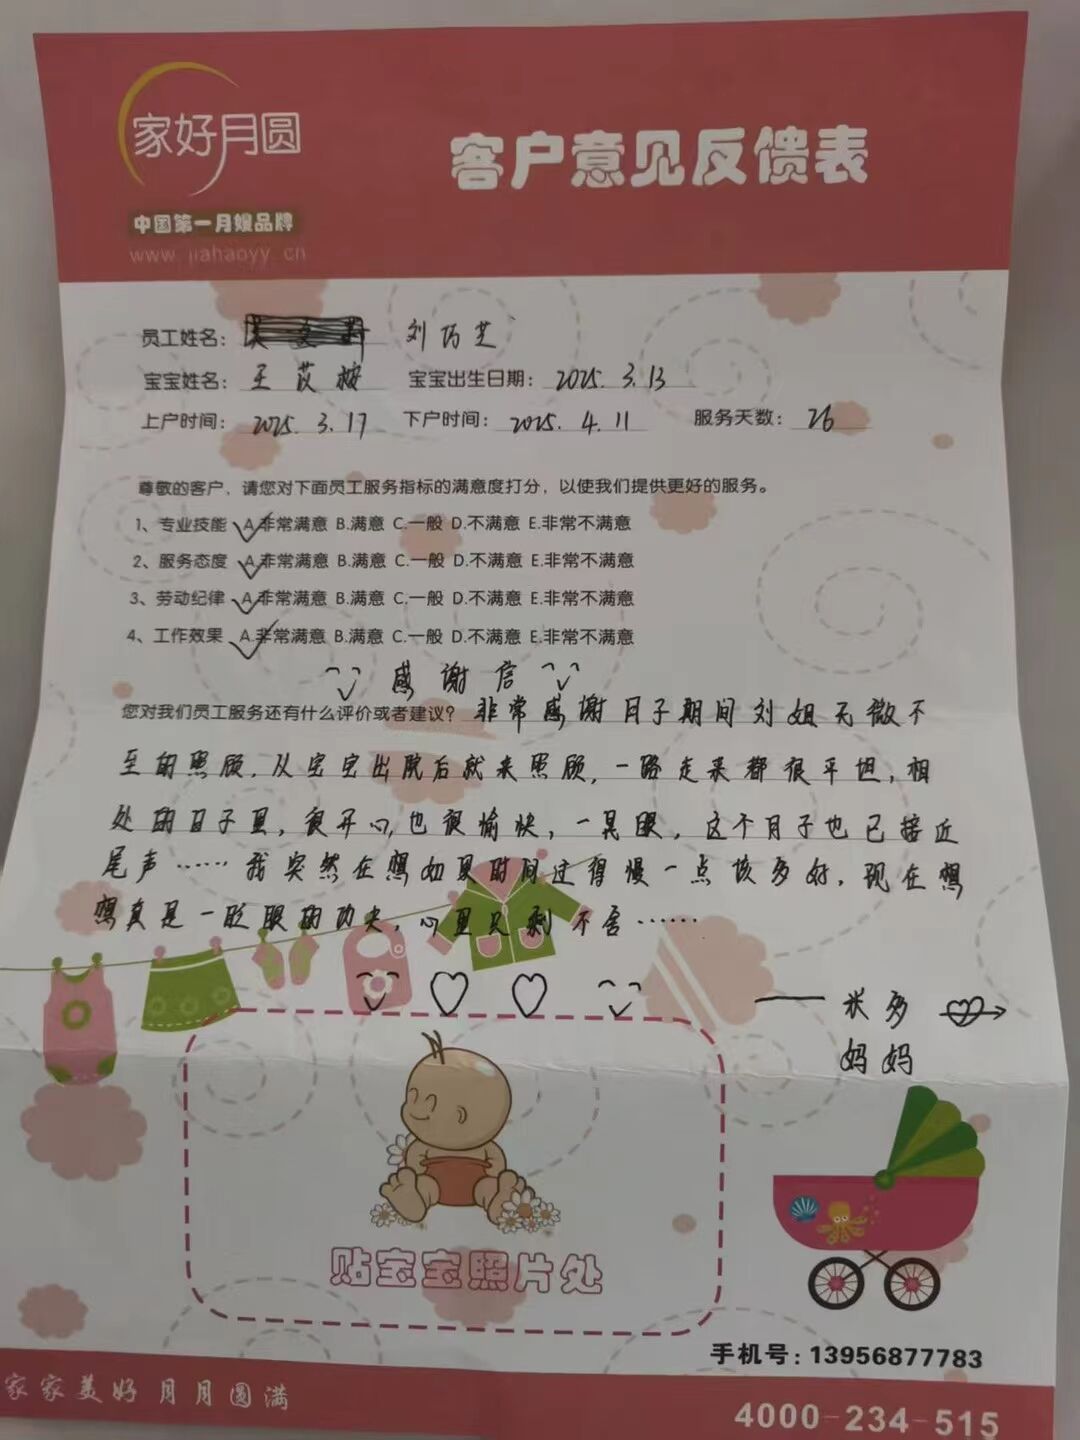 家好月圆
客户意见反馈表
中国第一月嫂品牌
www.jiahaoyy.cn
员工姓名： 刘巧芝
宝宝姓名：王苡桉 宝宝出生日期：2025.3.13
上户时间：2025.3.17 下户时间：2025.4.11 服务天数：26
尊敬的客户，请您对下面员工服务指标的满意度打分，以使我们提供更好的服务。
1、专业技能 A.非常满意 B.满意 C.一般 D.不满意 E.非常不满意
2、服务态度 A.非常满意 B.满意 C.一般 D.不满意 E.非常不满意
3、劳动纪律 A.非常满意 B.满意 C.一般 D.不满意 E.非常不满意
4、工作效果 A.非常满意 B.满意 C.一般 D.不满意 E.非常不满意
感谢信
您对我们员工服务还有什么评价或者建议？非常感谢月子期间刘姐无微不
至的照顾，从宝宝出院后就来照顾，一路走来都很平坦，相
处的日子里，很开心，也很愉快，一晃眼，这个月子也已接近
尾声……我突然在想如果时间过得慢一点该多好，现在想
想真是一眨眼的功夫，心里只剩不舍……
——米多
妈妈
贴宝宝照片处
手机号：13956877783
家家美好 月月圆满
4000-234-515